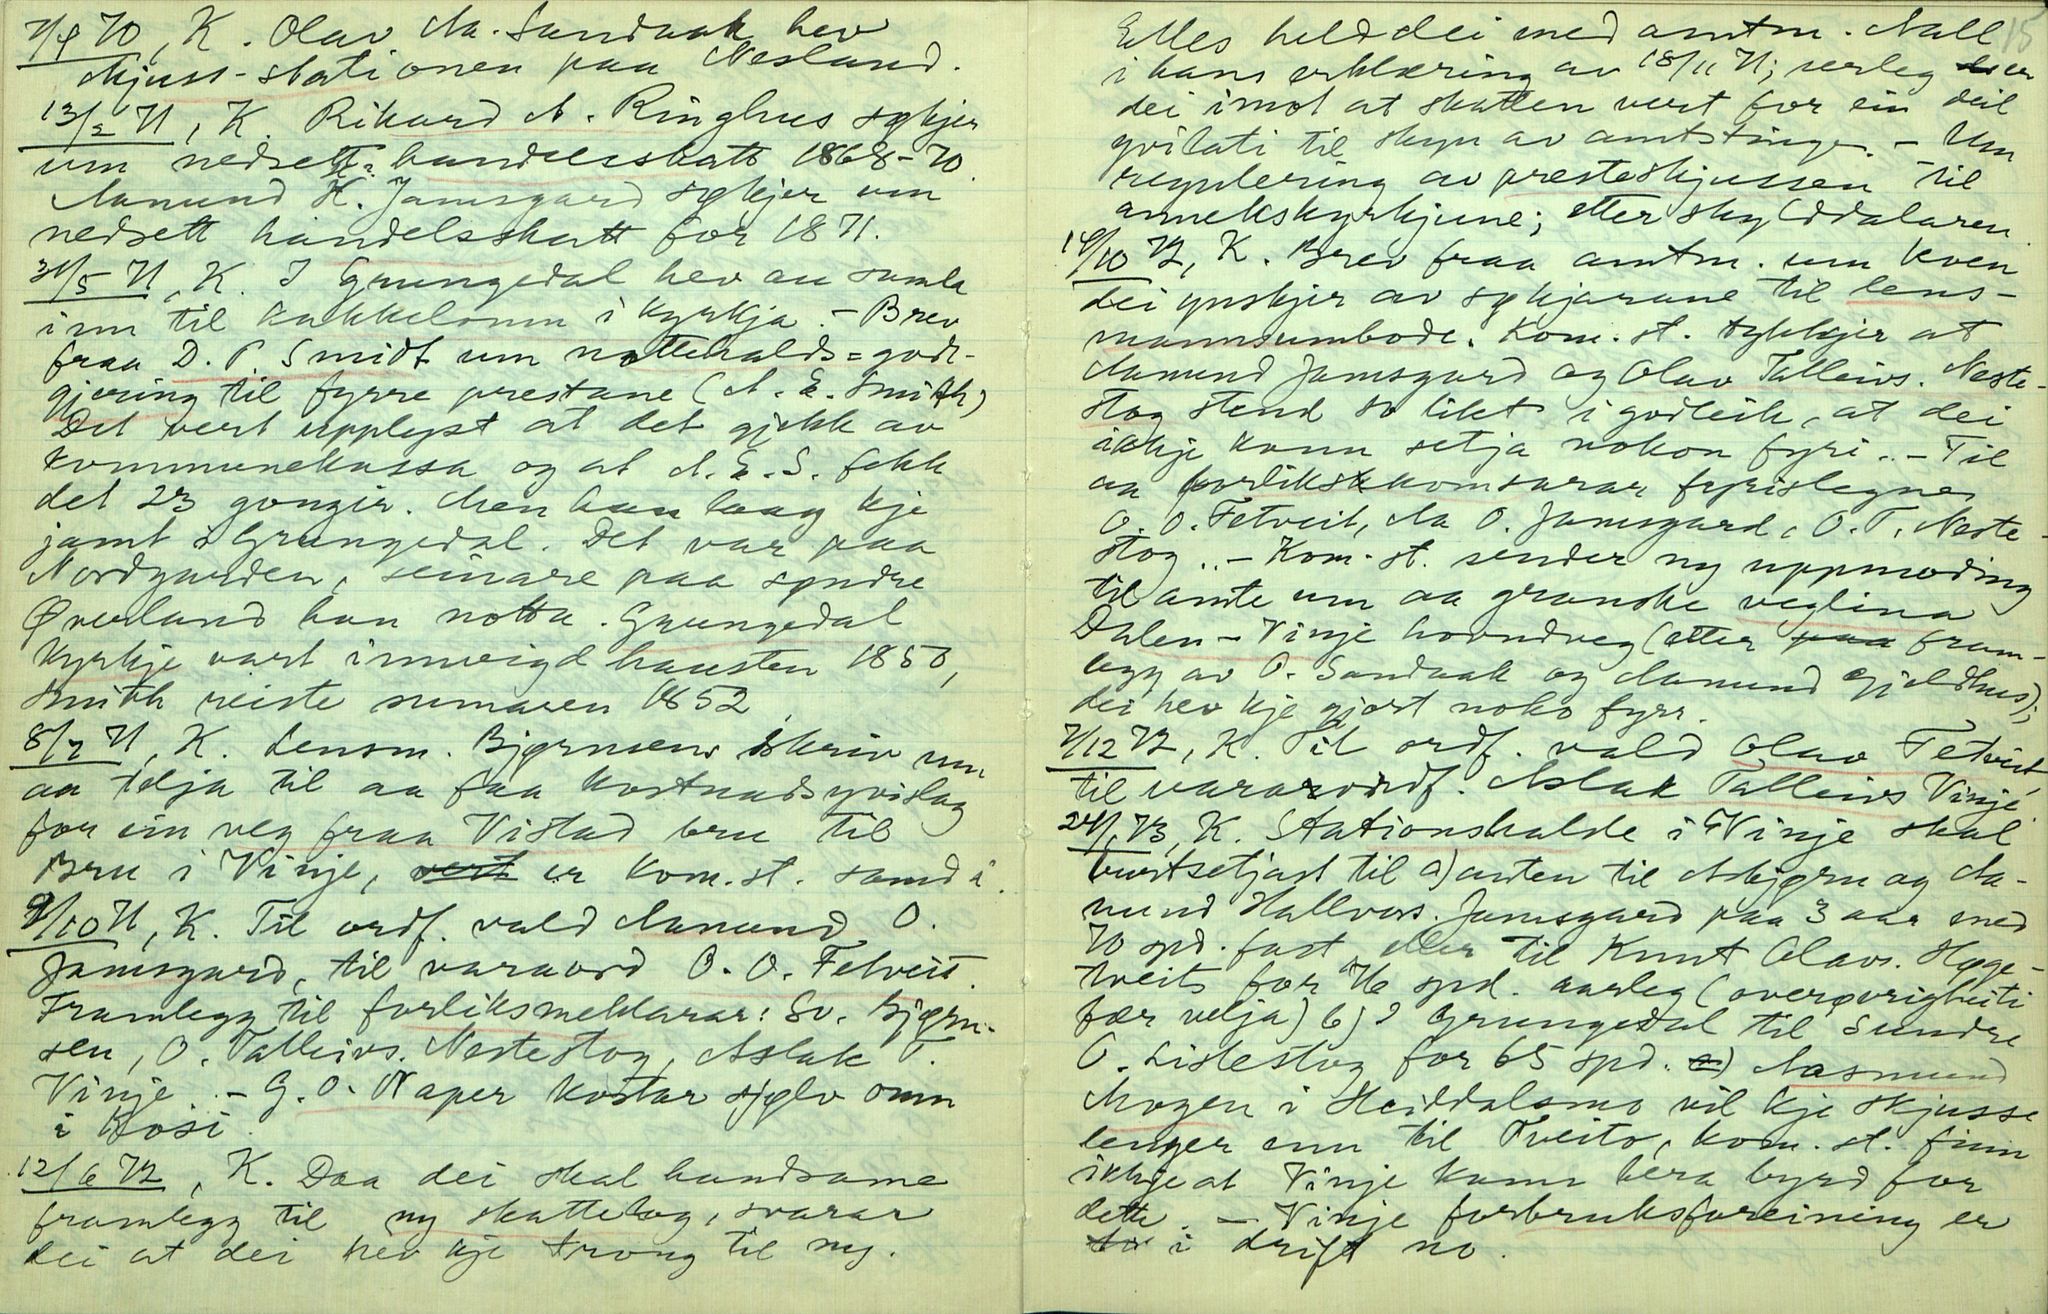 7/9 70, K. Olav Aa. Sandaak hev
skjuss-stationen paa Nesland.
13/2 71, K. Rikard A. Ringhus sökjer
um nedsett handelsskatt 1868-70.
Aamund K. Jamsgard sökjer um
nedsett handelsskatt for 1871.
31/5 71, K. I Grungedal hev au samla
inn til kakkelomn i kyrkja. - Brev
fraa D. P. Smidt um nattehalds=godt-
gjering til fyrre prestane (A. E. Smith)
Det vert upplyst at det gjekk av
kommunekassa og at A. E. S. fekk
det 23 gonger. Men han laag kje
jamt i Grungedal. Det var paa
Nordgarden, seinare paa syndre
Øverland han notta. Grungedal
kyrkje vart innvigd hausten 1850,
Smith reiste sumaren 1852
8/7 71, K. Lensm. Bjørnsens skriv um
aa telja til aa faa kostnadsyvislag
for ein veg fraa Vistad bru til
Bru i Vinje, vert er kom.st. samd i.
9/10 71, K. Til ordf. vald Aamund O.
Jamsgard, til varaord O. O. Fetveit.
Framlegg til forliksmeklarar: Sv. Bjørn-
sen, O. Talleivs. Nestestog, Aslak T.
Vinje. - G. O. Naper kostar sjølv omn
i Bøsi.
12/6 72, K. Daa dei skal handsama
framlegg til ny skattelog, svarar
dei at dei hev kje trong til ny.
15
Elles held dei med amtm. Aall
i hans erklæring av 18/11 71; serleg er
dei imot at skatten vert for ein deil
yvilati til skyn av amtstinge. - Um
regulering av presteskjussen til
annekskyrkjune; etter skylddalaren.
14/10 72, K. Brev fraa amtm. um kven
dei ynskjer av sökjarane til lens-
mannsumbode. Kom. st. tykkjer at
Aamund Jamsgard og Olav Talleivs. Neste-
stog stend so likt i godleik, at dei
ikkje kann setja nokon fyri. - Til
aa forlikskomsarar fyrislegne
O. O. Fetveit, Aa O. Jamsgard, O. T. Neste-
stog. - Kom-st. sender ny uppmoding
til amte um aa granske veglina
Dalen - Vinje hovudveg (etter paa fram-
legg av O. Sandaak og Aamund Gjeldhus);
dei hev kje gjort noko fyrr.
7/12 72, K. Til ordf. vald Olav Fetveit,
til varaordf. Aslak Talleivs Vinje
24/1 73, K. Stationshalde i Vinje skal
burtsetjast til a) anten til Asbjørn og Aa-
mund Hallvors. Jamsgard paa 3 aar med
70 spd. fast eller til Knut Olavs. Høge-
tveit for 76 spd. aarleg (overøvrigheiti
fær velja) b) I Grungedal til Sundre
O. Listestog for 65 spd. Aasmund
Mogen i Heiddalsmo vil kje skjusse
lenger enn til Tveito, kom. st. finn
ikkje at Vinje kann bera byrd for
dette. - Vinje forbruksforeining er
i drift no.